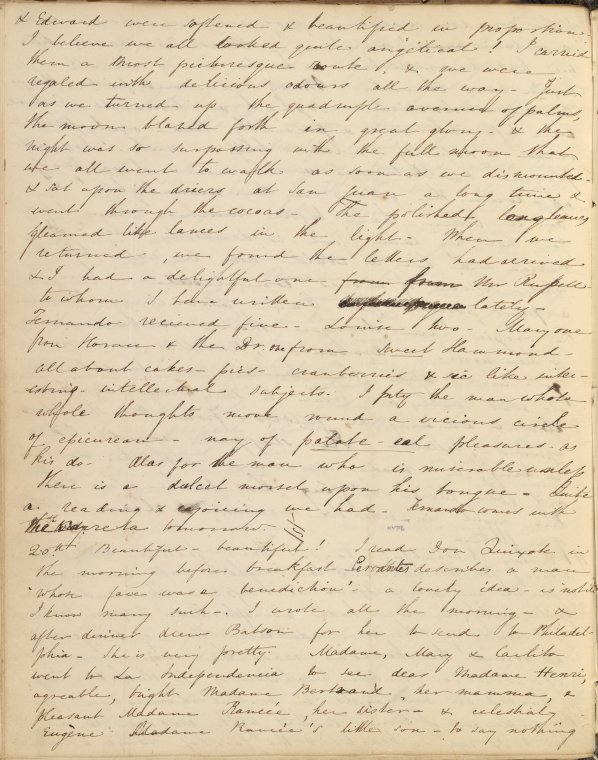 & Edward were softened & beautified in proportion.
I believe we all looked quite angelical! I carried
them a most picturesque route, & we were
regaled with delicious odours all the way. Just
as we turned up the quadruple avenue of palms,
the moon blazed forth in great glory - & the
night was so surpassing with the full moon that
we all went to walk as soon as we dismounted -
& sat upon the driers at San Juan a long time &
went through the cocoas - The polished long leaves
gleamed like lances in the light - When we
returned, we found the letters had arrived
& I had a delightful one from from Mr Russell
to whom I have written lately -
Fernando recieved five - Louisa two - Mary one
from Horace & the Dr. one from sweet Hammond -
all about cakes - pies - cranberries & sic like inter-
esting intellectual subjects. I pity the man whose
whole thoughts move round a vicious circle
of epicurean - nay of palate-eal pleasures - as
his do - Alas for the man who is miserable unless
there is a dulcet morsel upon his tongue - Quite
a reading & we had - Fernando comes with
the tomorrow -
20th Beautiful - beautiful! I read Don Quixote in
the morning before breakfast Cervantes describes a man
'whose face was a benediction' - a lovely idea - is not it
I know many such - I wrote all the morning - &
after dinner drew Batson for her to send to Philadel-
phia - She is very pretty. Madame, Mary & Carlito
went to La Independencia to see dear Madame Henri,
agreable, bright Madame Bertrand, her mamma, &
pleasant Madame Rancée, her sister - & celestial
Eugène Madame Rancée's little son - to say nothing